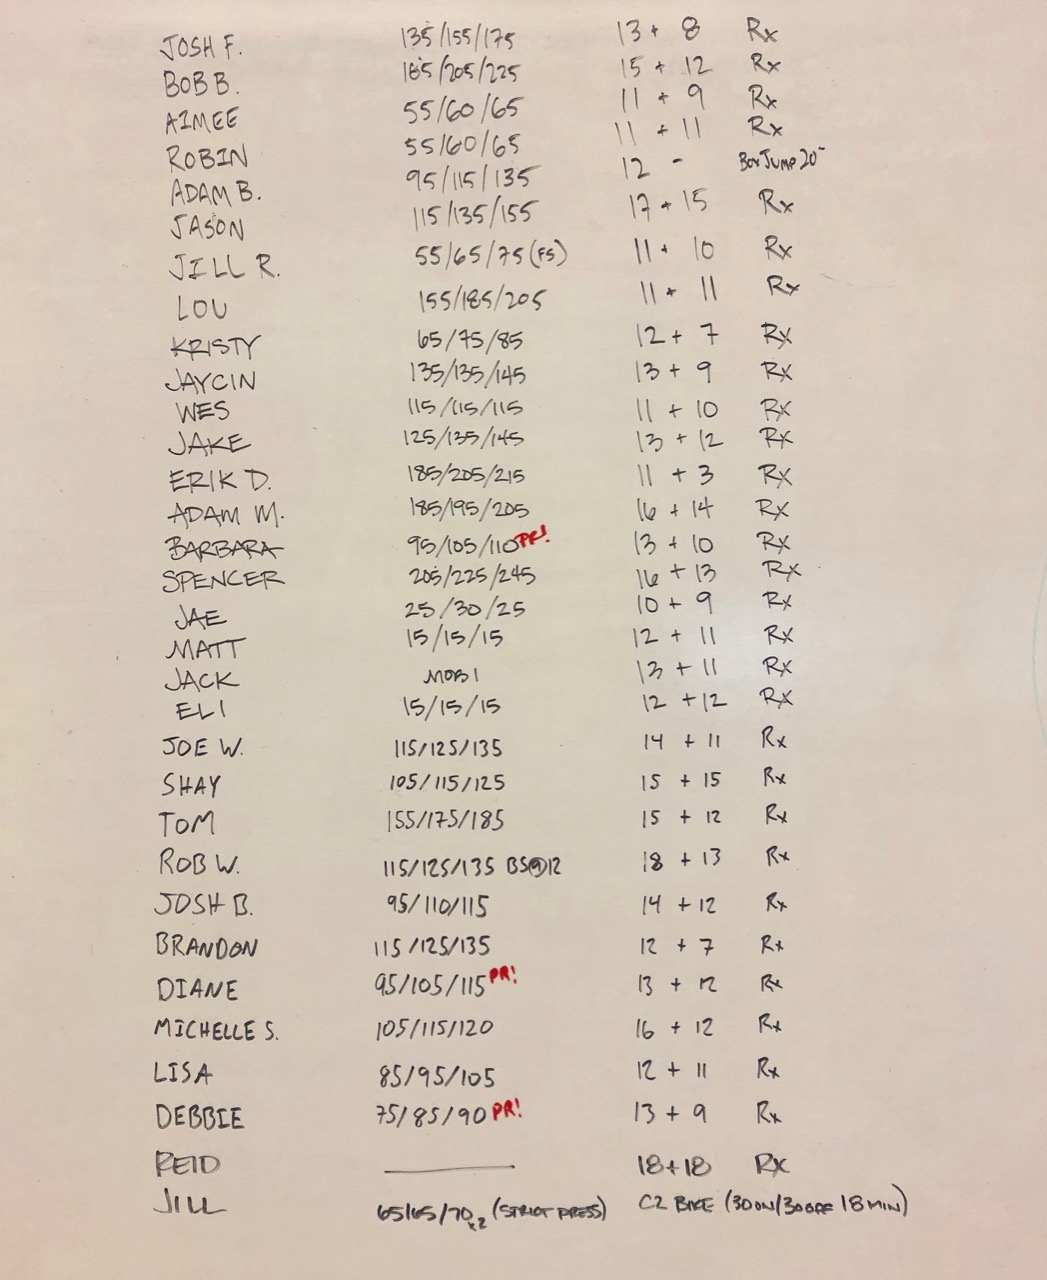 JOSH F. 135/155/175 13 + 8 Rx
BOB B. 185/205/225 15 + 12 Rx
AIMEE 55/60/65 11 + 9 Rx
ROBIN 55/60/65 11 + 11 Rx
ADAM B. 95/115/135 12 - Box Jump 20"
JASON 115/135/155 17 + 15 Rx
JILL R. 55/65/75 (FS) 11 + 10 Rx
LOU 155/185/205 11 + 11 Rx
KRISTY 65/75/85 12 + 7 Rx
JAYCIN 135/135/145 13 + 9 Rx
WES 115/115/115 11 + 10 Rx
JAKE 125/135/145 13 + 12 Rx
ERIK D. 185/205/215 11 + 3 Rx
ADAM M. 185/195/205 16 + 14 Rx
BARBARA 95/105/110 PR! 13 + 10 Rx
SPENCER 205/225/245 16 + 13 Rx
JAE 25/30/25 10 + 9 Rx
MATT 15/15/15 12 + 11 Rx
JACK MOBI 13 + 11 Rx
ELI 15/15/15 12 + 12 Rx
JOE W. 115/125/135 14 + 11 Rx
SHAY 105/115/125 15 + 15 Rx
TOM 155/175/185 15 + 12 Rx
ROB W. 115/125/135 BS@12 18 + 13 Rx
JOSH B. 95/110/115 14 + 12 Rx
BRANDON 115/125/135 12 + 7 Rx
DIANE 95/105/115 PR! 13 + 12 Rx
MICHELLE S. 105/115/120 16 + 12 Rx
LISA 85/95/105 12 + 11 Rx
DEBBIE 75/85/90 PR! 13 + 9 Rx
REID 18+18 Rx
JILL 65/65/70 x2 (STRICT PRESS) C2 BIKE (30 ON/30 OFF 18 MIN)